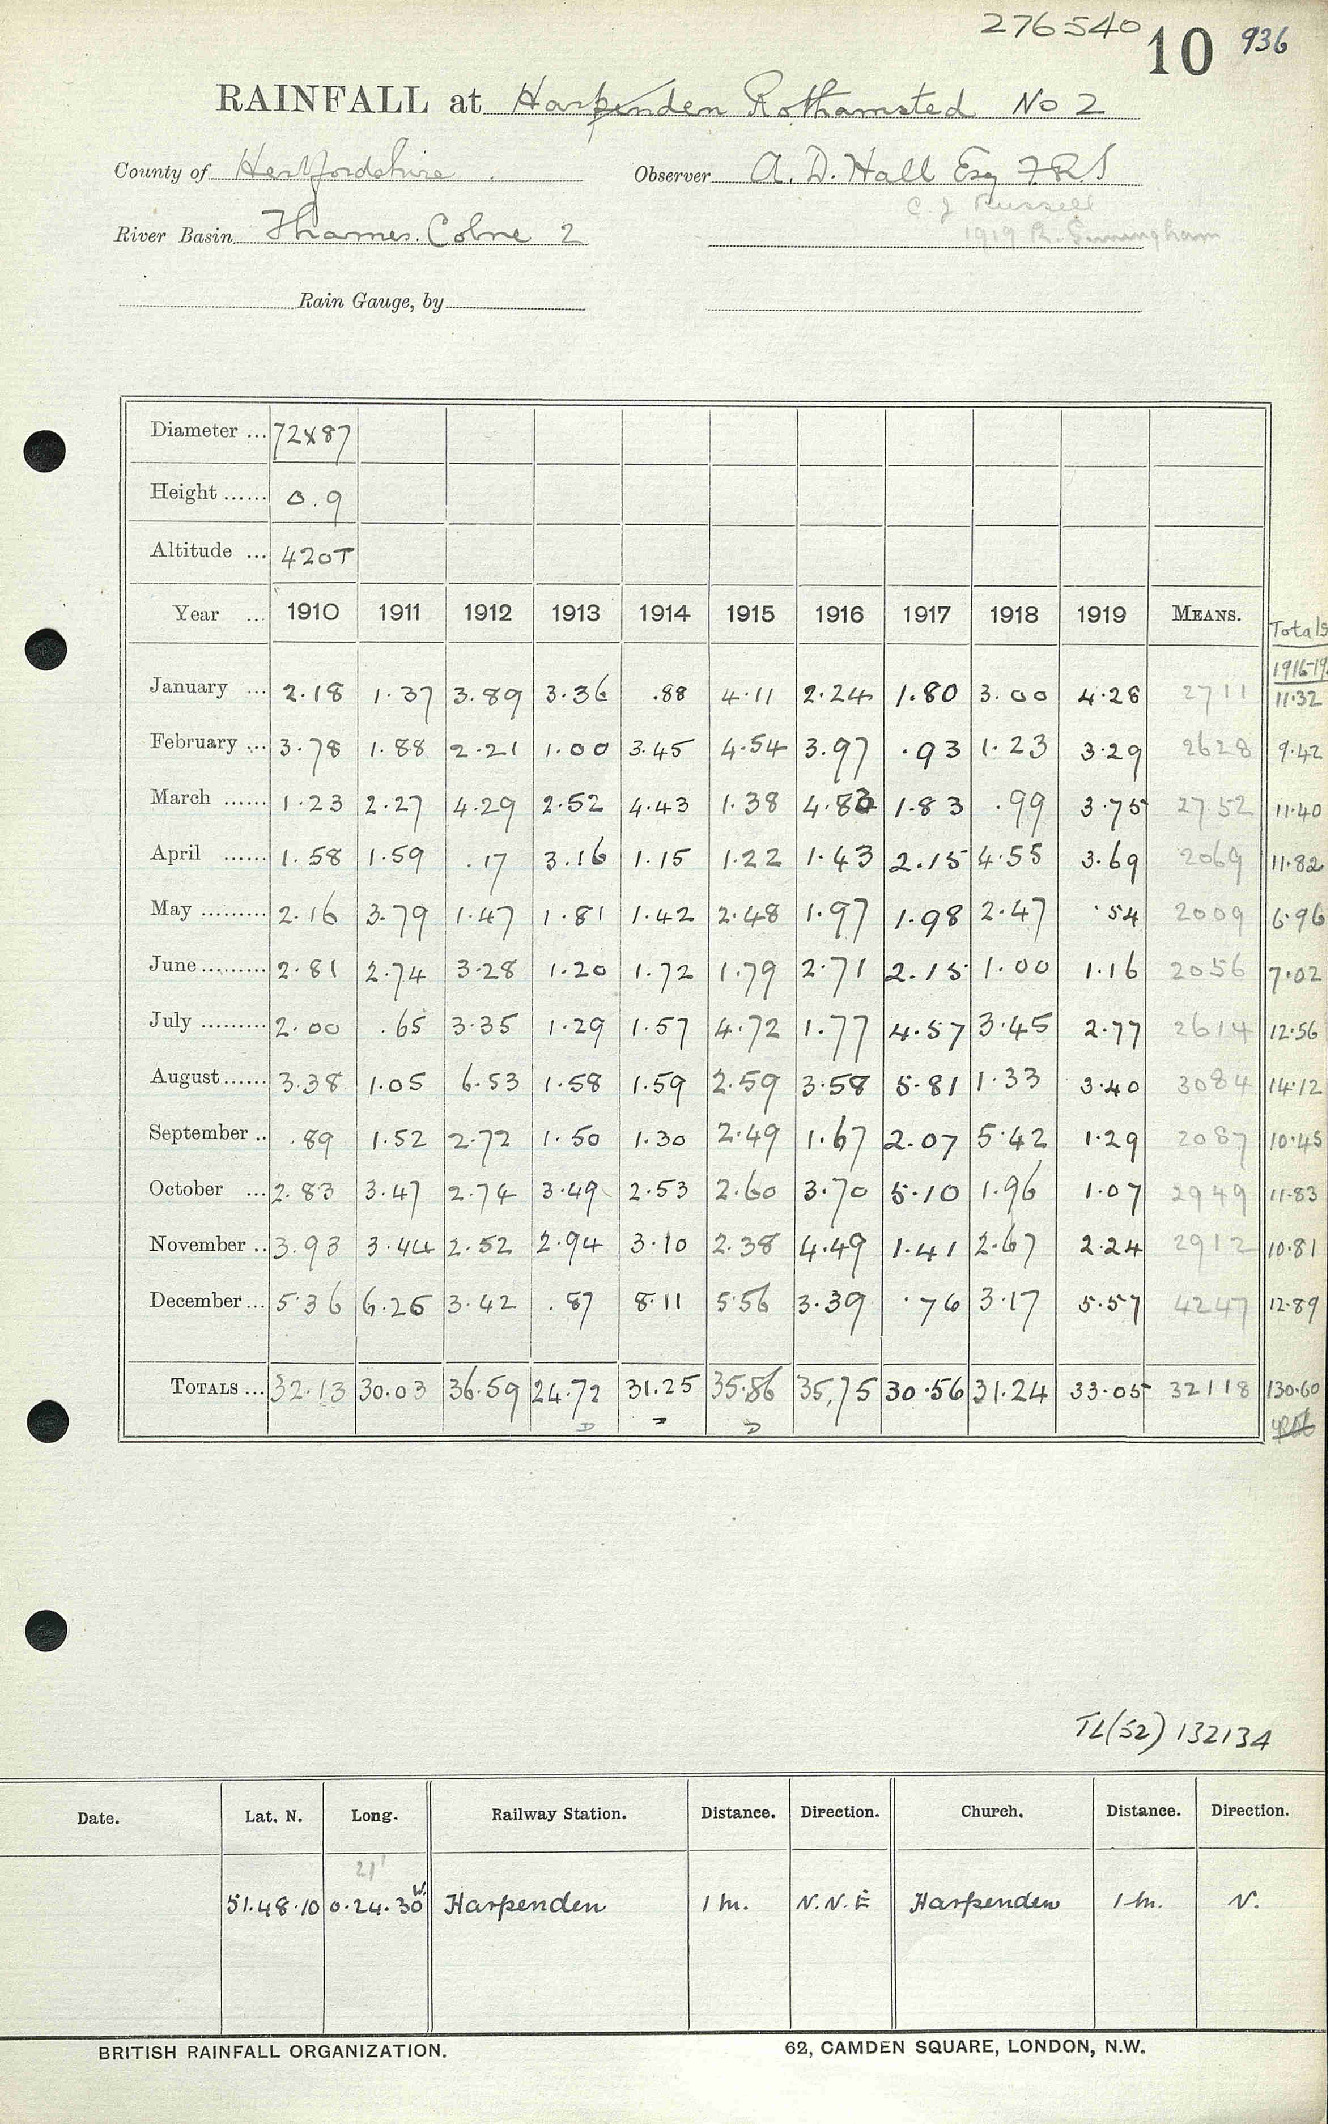 276540 10 936
RAINFALL at Harpenden Rothamsted No 2
County of Hertfordshire. Observer A. D. Hall Esq FRS
C. J Russell
River Basin Thames. Colne 2 1919 R.
Rain Gauge, by
Diameter ... 72x87
Height ...... 0.9
Altitude ... 420T
Year ... 1910 1911 1912 1913 1914 1915 1916 1917 1918 1919 MEANS. Totals
1916-19
January ... 2.18 1.37 3.89 3.36 .88 4.11 2.24 1.80 3.00 4.28 2711 11.32
February ... 3.78 1.88 2.21 1.00 3.45 4.54 3.97 .93 1.23 3.29 2628 9.42
March ...... 1.23 2.27 4.29 2.52 4.43 1.38 4.83 1.83 .99 3.75 2752 11.40
April ...... 1.58 1.59 .17 3.16 1.15 1.22 1.43 2.15 4.55 3.69 2069 11.82
May ......... 2.16 3.79 1.47 1.81 1.42 2.48 1.97 1.98 2.47 .54 2009 6.96
June ......... 2.81 2.74 3.28 1.20 1.72 1.79 2.71 2.15 1.00 1.16 2056 7.02
July ......... 2.00 .65 3.35 1.29 1.57 4.72 1.77 4.57 3.45 2.77 2614 12.56
August ...... 3.38 1.05 6.53 1.58 1.59 2.59 3.58 5.81 1.33 3.40 3084 14.12
September .. .89 1.52 2.72 1.50 1.30 2.49 1.67 2.07 5.42 1.29 2087 10.45
October ... 2.83 3.47 2.74 3.49 2.53 2.60 3.70 5.10 1.96 1.07 2949 11.83
November .. 3.93 3.44 2.52 2.94 3.10 2.38 4.49 1.41 2.67 2.24 2912 10.81
December ... 5.36 6.26 3.42 .87 8.11 5.56 3.39 .76 3.17 5.57 4247 12.89
TOTALS ... 32.13 30.03 36.59 24.72 31.25 35.86 35.75 30.56 31.24 33.05 32118 130.60
TL(52) 132134
Date. Lat. N. Long. Railway Station. Distance. Direction. Church. Distance. Direction.
21'
51.48.10 0.24.30 W. Harpenden 1 m. N.N.E Harpenden 1 m. N.
BRITISH RAINFALL ORGANIZATION. 62, CAMDEN SQUARE, LONDON, N.W.